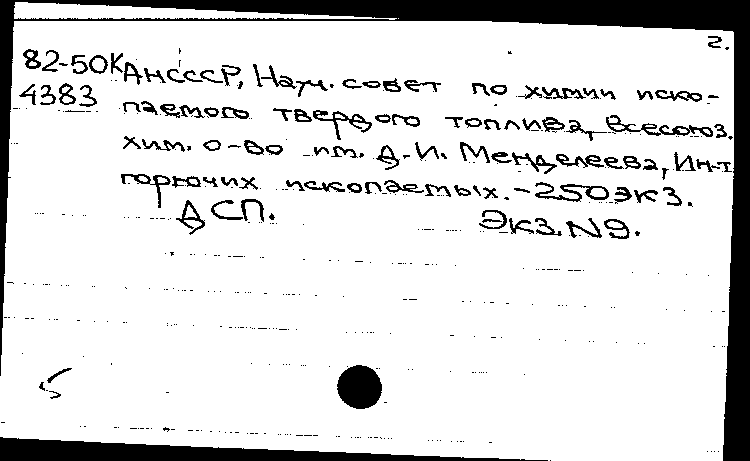 2.
82-50К АН СССР, Науч. совет по химии иско-
4383 паемого твердого топлива, Всесоюз.
хим. о-во им. Д.И. Менделеева, Ин-т
горючих ископаемых. - 250 экз.
ДСП. Экз. N9.
5